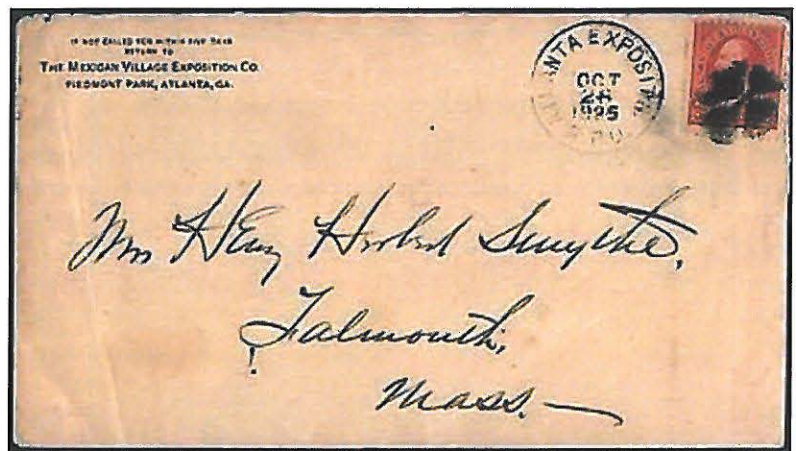 IF NOT CALLED FOR WITHIN FIVE DAYS
RETURN TO
THE MEXICAN VILLAGE EXPOSITION CO.
PIEDMONT PARK, ATLANTA, GA.
ATLANTA EXPOSIT'N
OCT
1895
Mrs Henry Herbert Smythe,
Falmouth,
Mass.